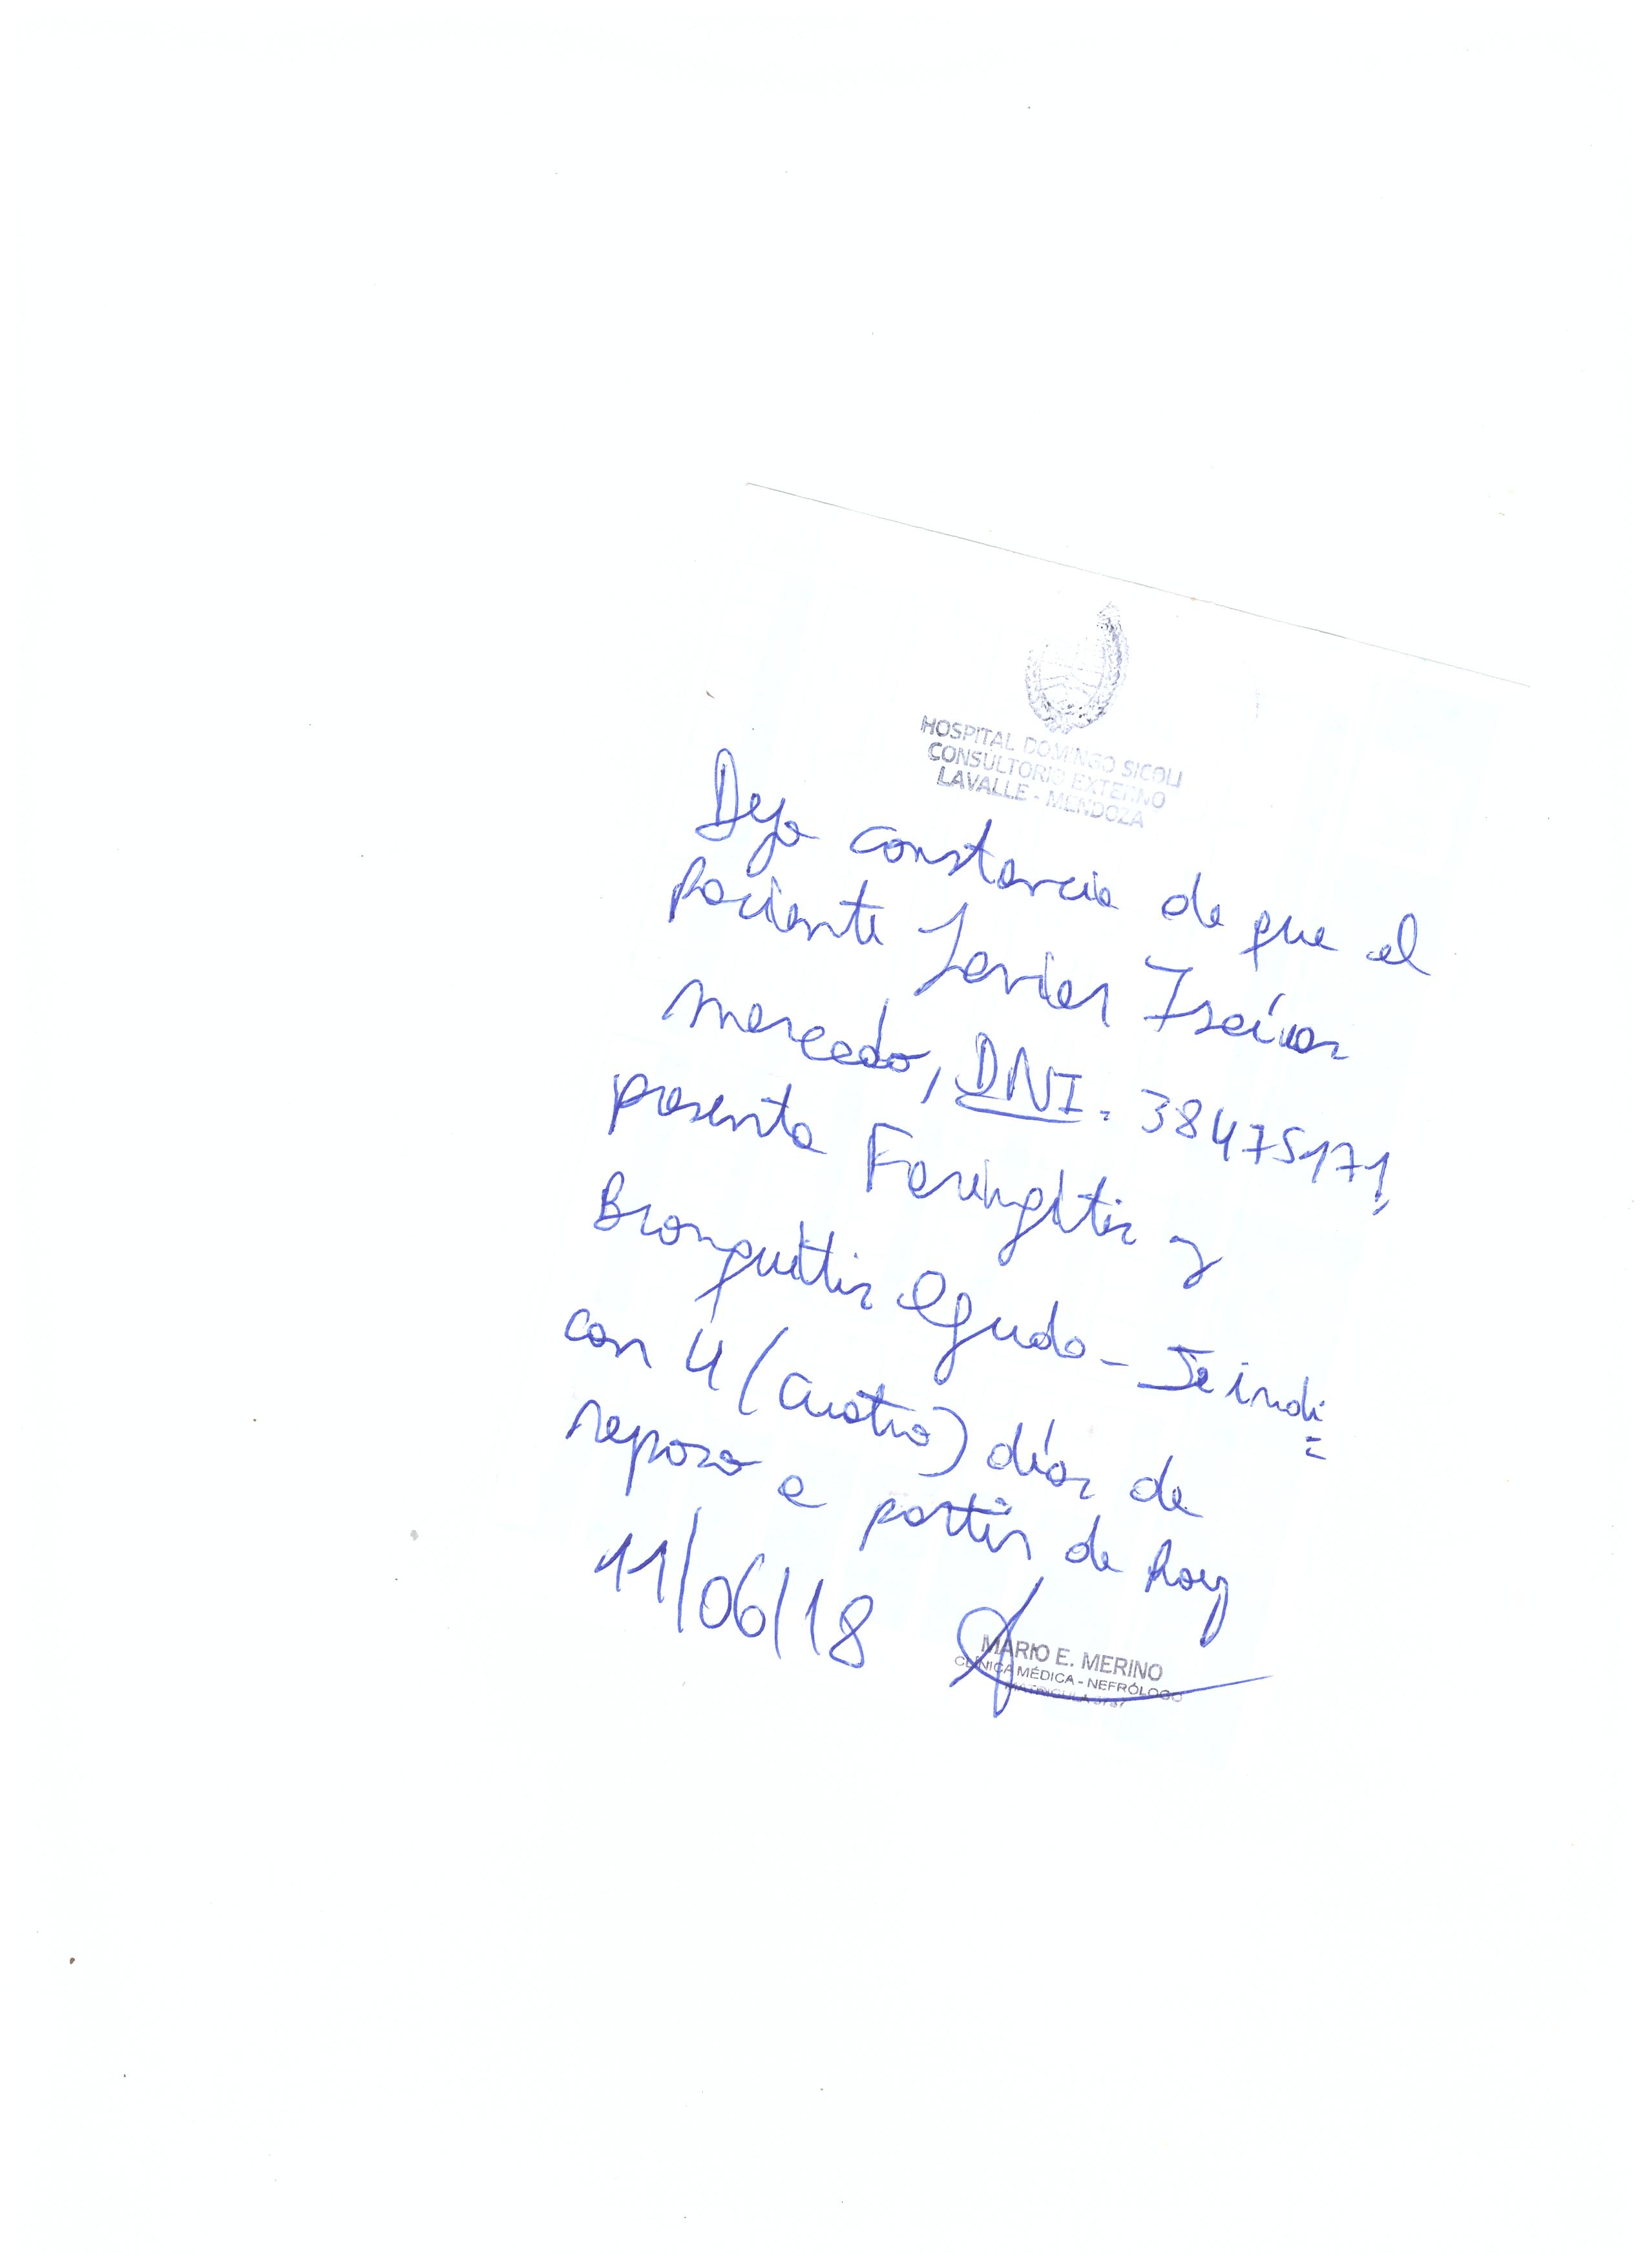 HOSPITAL DOMINGO SICOLI
CONSULTORIO EXTERNO
LAVALLE - MENDOZA
Dejo constancia de que el
paciente Javier
Mercado, DNI: 38475171,
presenta Faringitis y
Bronquitis Aguda - Se indi=
can 4 (cuatro) días de
reposo a partir de hoy
11/06/18
MARIO E. MERINO
CLÍNICA MÉDICA - NEFRÓLOGO
MATRICULA